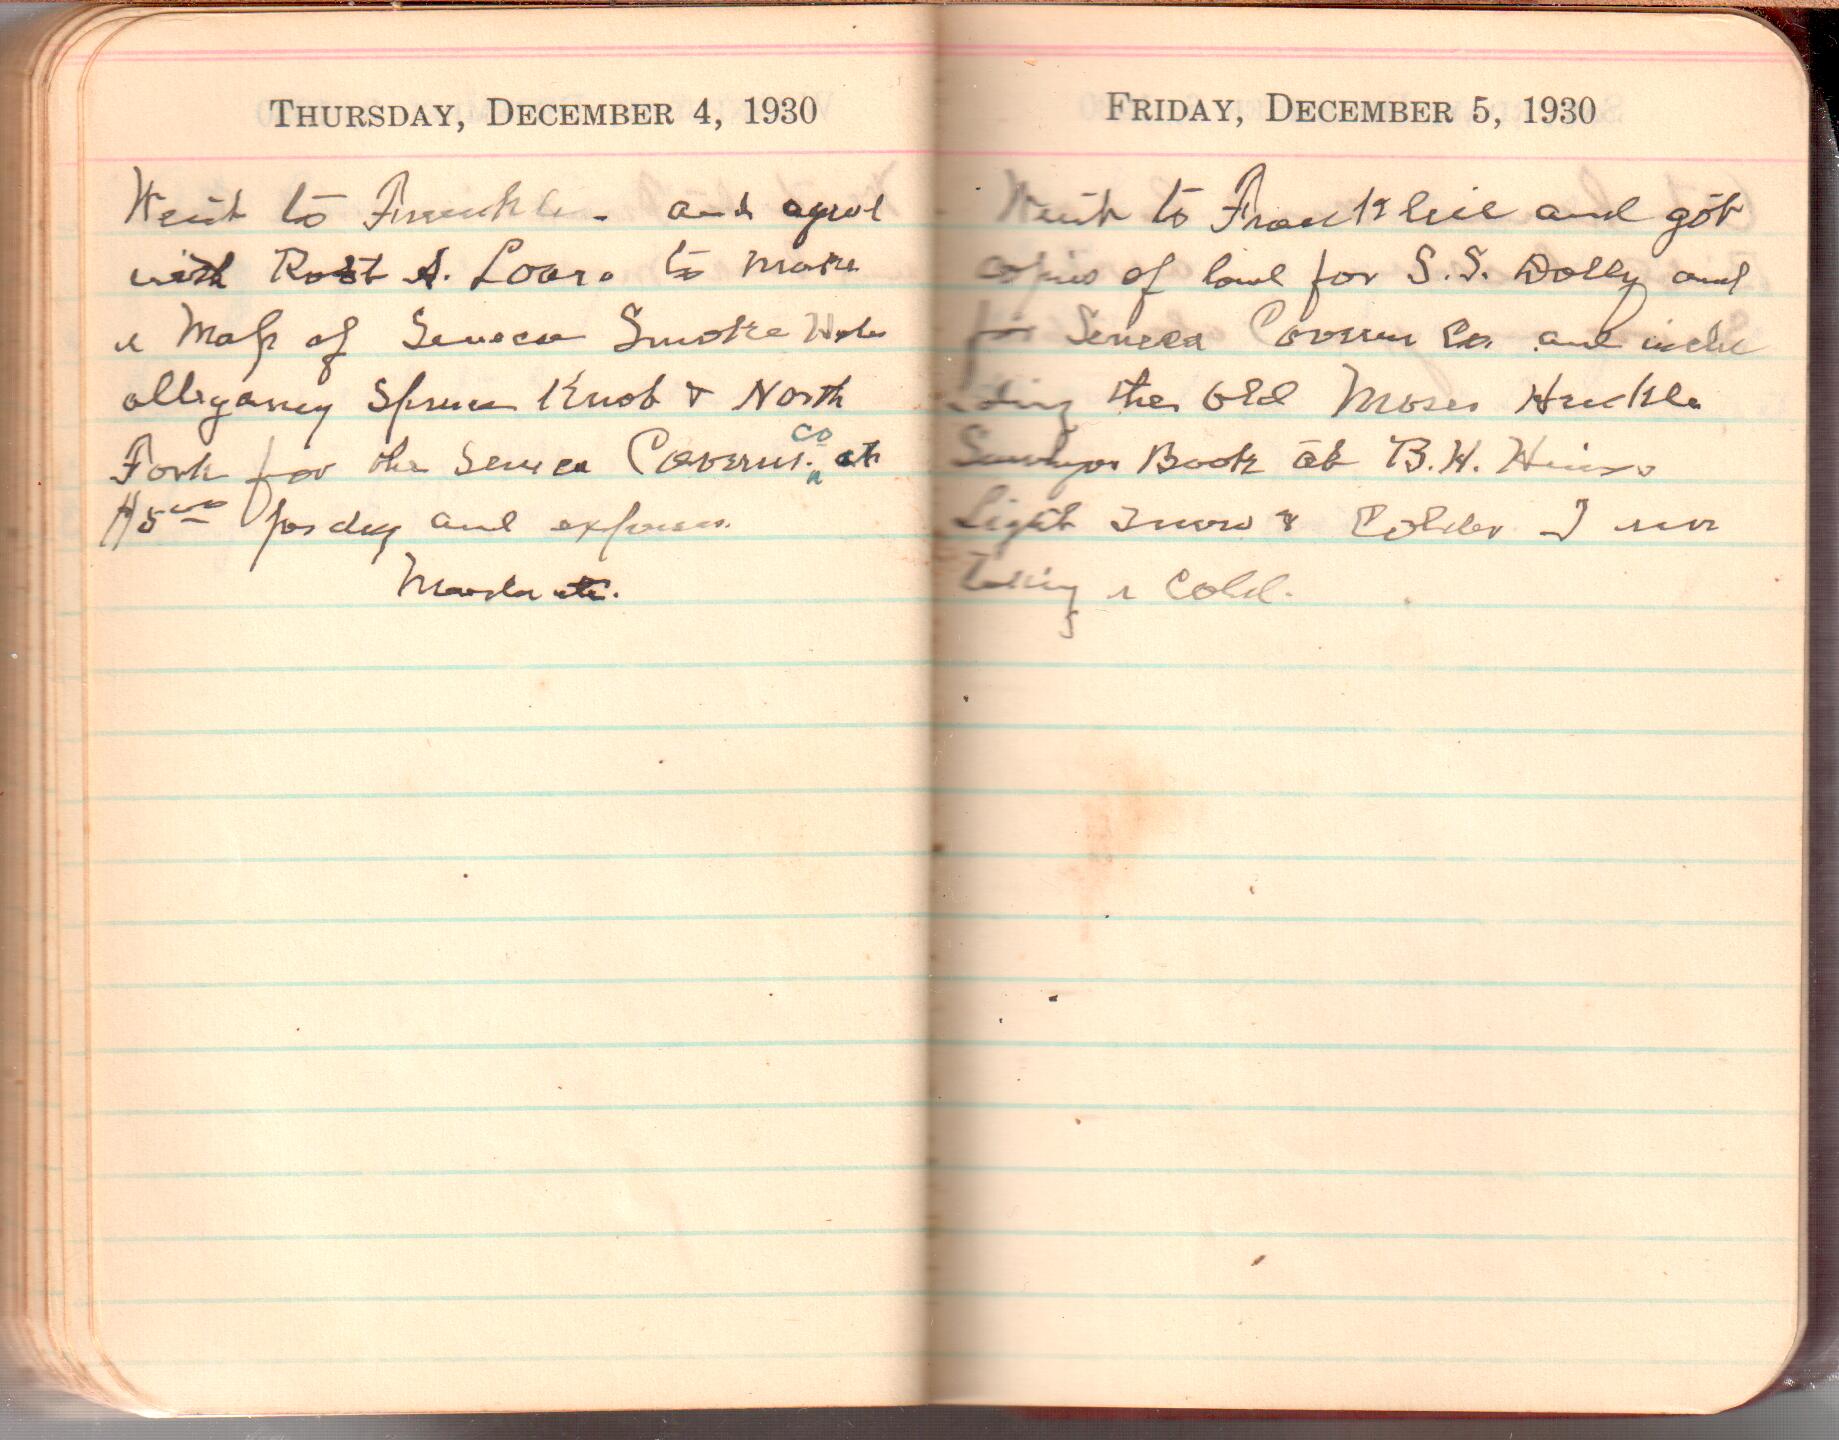 THURSDAY, DECEMBER 4, 1930
Went to Franklin - and agred
with Robt A. Loar. to make
a Map of Seneca Smoke Hole
allegany Spruce Knob & North
Fork for the Seneca Caverns Co at
$5.00 per day and expenses.
Moderate.
FRIDAY, DECEMBER 5, 1930
Went to Franklin and got
copies of land for S.S. Dolly and
for Seneca Cavern Co. and inclu
ding the old Moses
Surveyor Book at B.H.
Light snow & Colder I am
taking a Cold.